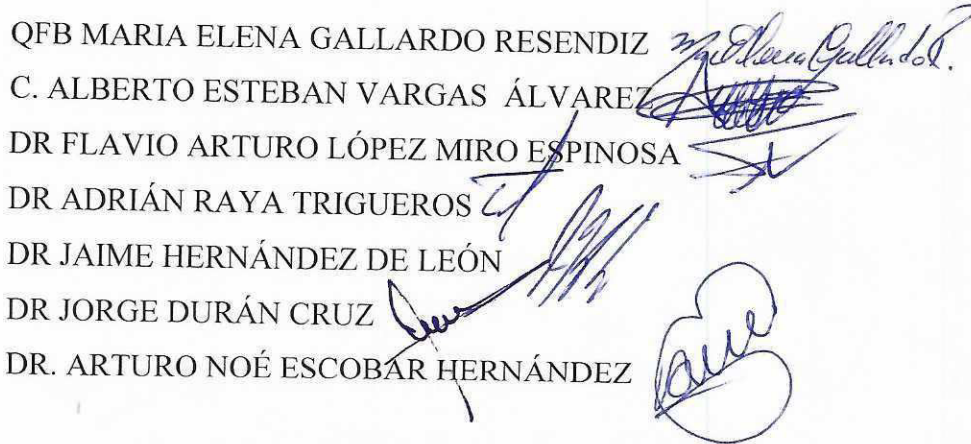 QFB MARIA ELENA GALLARDO RESENDIZ Ma Elena Gallardo R.
C. ALBERTO ESTEBAN VARGAS ÁLVAREZ
DR FLAVIO ARTURO LÓPEZ MIRO ESPINOSA
DR ADRIÁN RAYA TRIGUEROS
DR JAIME HERNÁNDEZ DE LEÓN
DR JORGE DURÁN CRUZ
DR. ARTURO NOÉ ESCOBAR HERNÁNDEZ